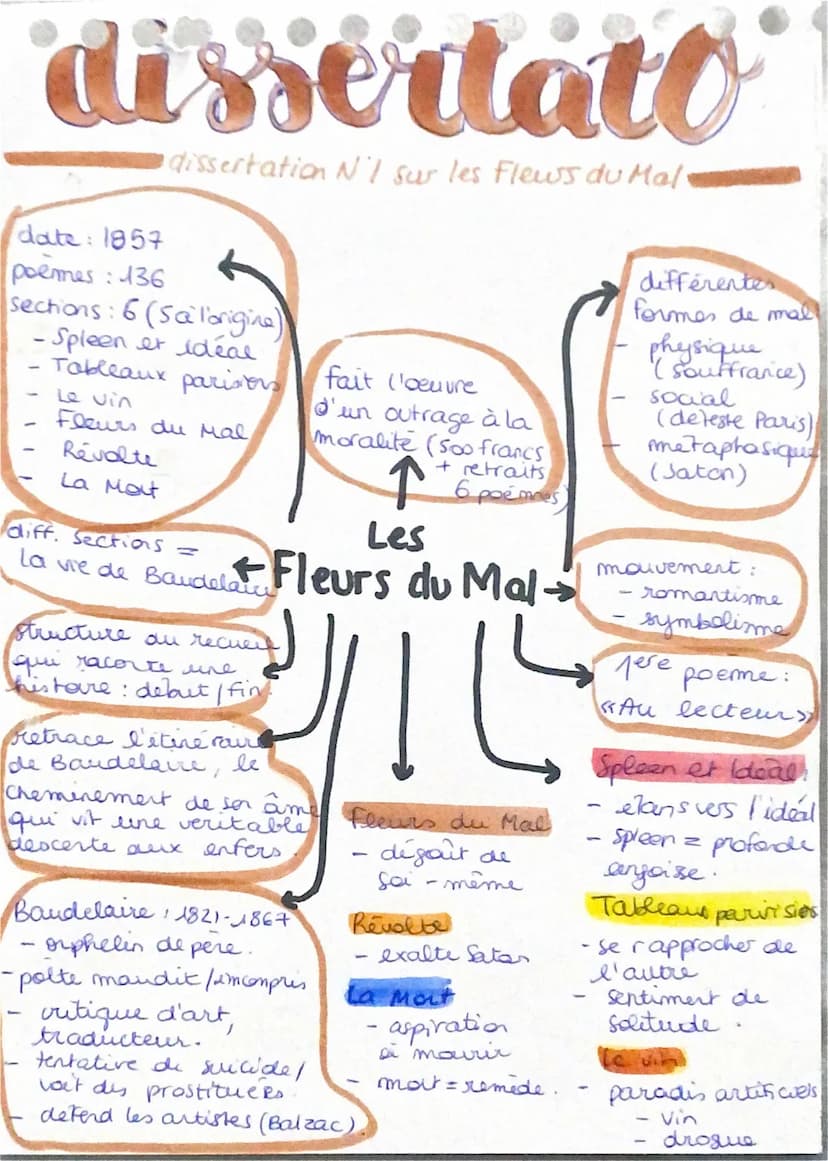 dissertatO
dissertation N°1 sur les Fleurs du Mal
date : 1857
poèmes : 136
sections : 6 (5 à l'origine)
- Spleen et idéal
- Tableaux parisiens
- Le vin
- Fleurs du Mal
- Révolte
- La Mort
fait l'oeuvre
d'un outrage à la
moralité (500 francs
+ retraits
6 poèmes)
différentes
formes de mal
- physique
(souffrance)
- social
(déteste Paris)
- métaphasique
(Satan)
Les
Fleurs du Mal
diff. sections =
la vie de Baudelaire
structure du recueil
qui raconte une
histoire : début / fin
retrace l'itinéraire
de Baudelaire, le
cheminement de son âme
qui vit une véritable
descente aux enfers.
Baudelaire : 1821-1867
- orphelin de père.
- poète maudit / incompris
- critique d'art,
traducteur.
- tentative de suicide /
voit des prostituées.
- défend les artistes (Balzac)
mouvement :
- romantisme
- symbolisme
1ère poème :
«Au lecteur»
Fleurs du Mal
- dégoût de
soi-même
Révolte
- exalte Satan
La Mort
- aspiration
à mourir
- mort = remède.
Spleen et Idéal
- élans vers l'idéal
- spleen = profonde
angoisse.
Tableaux parisiens
- se rapprocher de
l'autre
- sentiment de
solitude.
Le vin
- paradis artificiels
- vin
- drogue